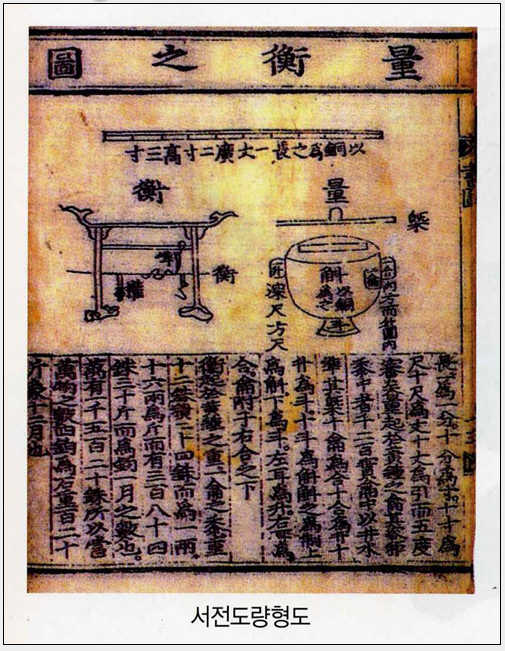 量衡之圖
以銅爲之長一丈廣二寸高三寸
量
槩
斛
以銅爲之
深尺方尺
衡
衡
權
尺十尺爲丈十丈爲引而五度
審矣量起於黃鍾之龠
黍中者千二百實龠中以井水
準其槩十龠爲合十合爲升十
升爲斗十斗爲斛斛之爲制上
爲斛下爲斗左耳爲升右耳爲
合龠附于右合之下
衡起於黃鍾之重一龠之黍重
十二銖積二十四銖而爲一兩
十六兩爲斤而有三百八十四
銖三十斤而爲鈞一月之數也
萬有一千五百二十銖所以當
萬物之數四鈞爲石重百二十
斤象十二月也
서전도량형도